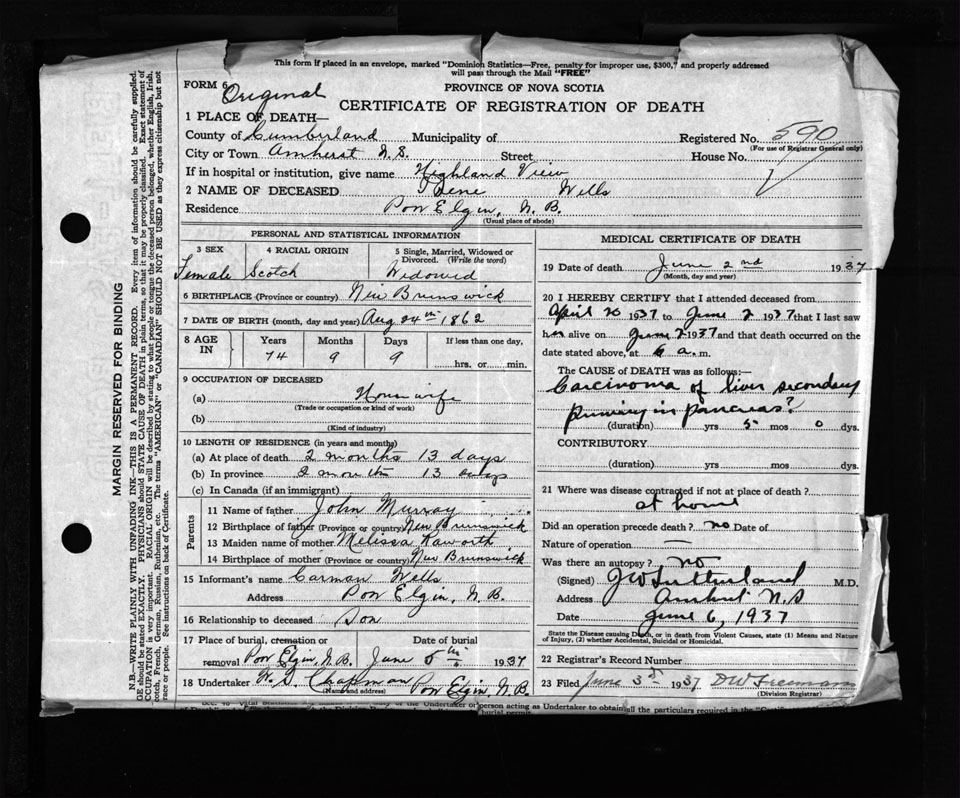 This form if placed in an envelope, marked "Dominion Statistics—Free, penalty for improper use, $300," and properly addressed
will pass through the Mail "FREE"
FORM
Original
PROVINCE OF NOVA SCOTIA
CERTIFICATE OF REGISTRATION OF DEATH
1 PLACE OF DEATH—
County of Cumberland Municipality of Registered No. 590
(For use of Registrar General only)
City or Town Amherst N.S. Street House No.
If in hospital or institution, give name Highland View
2 NAME OF DECEASED Irene Wells
Residence Port Elgin, N.B.
(Usual place of abode)
PERSONAL AND STATISTICAL INFORMATION
3 SEX 4 RACIAL ORIGIN 5 Single, Married, Widowed or Divorced. (Write the word)
Female Scotch Widowed
6 BIRTHPLACE (Province or country) New Brunswick
7 DATE OF BIRTH (month, day and year) Aug 24th 1862
8 AGE IN Years Months Days If less than one day,
74 9 9 hrs. or min.
9 OCCUPATION OF DECEASED
(a) Housewife
(Trade or occupation or kind of work)
(b)
(Kind of industry)
10 LENGTH OF RESIDENCE (in years and months)
(a) At place of death 2 months 13 days
(b) In province 2 months 13 days
(c) In Canada (if an immigrant)
Parents
11 Name of father John Murray
12 Birthplace of father (Province or country) New Brunswick
13 Maiden name of mother Melissa Haworth
14 Birthplace of mother (Province or country) New Brunswick
15 Informant's name Carman Wells
Address Port Elgin, N.B.
16 Relationship to deceased Son
17 Place of burial, cremation or removal Port Elgin, N.B. Date of burial June 5th 1937
18 Undertaker Chapman Port Elgin, N.B.
(Name and address)
MEDICAL CERTIFICATE OF DEATH
19 Date of death June 2nd 1937
(Month, day and year)
20 I HEREBY CERTIFY that I attended deceased from
April 20 1937 to June 2 1937 that I last saw
her alive on June 2 1937 and that death occurred on the
date stated above, at 6 a.m.
The CAUSE OF DEATH was as follows:—
Carcinoma of liver secondary
primary in pancreas?
(duration) yrs 5 mos 0 dys.
CONTRIBUTORY
(duration) yrs mos dys.
21 Where was disease contracted if not at place of death?
at home
Did an operation precede death? no Date of
Nature of operation —
Was there an autopsy? no
(Signed) JW Sutherland M.D.
Address Amherst N.S
Date June 6, 1937
State the Disease causing Death, or in death from Violent Causes, state (1) Means and Nature
of Injury, (2) whether Accidental, Suicidal or Homicidal.
22 Registrar's Record Number
23 Filed June 3rd 1937 DW Freeman
(Division Registrar)
MARGIN RESERVED FOR BINDING
N.B.—WRITE PLAINLY WITH UNFADING INK—THIS IS A PERMANENT RECORD. Every item of information should be carefully supplied.
AGE should be stated EXACTLY. PHYSICIANS should STATE CAUSE OF DEATH in plain terms, so that it may be properly classified. Exact statement of
OCCUPATION is very important. RACIAL ORIGIN will be described by stating to what people or tongue the deceased person belonged, whether English, Irish,
Scotch, French, German, Russian, Ruthenian, etc. The terms "AMERICAN" or "CANADIAN" SHOULD NOT BE USED as they express citizenship but not
race or people. See instructions on back of Certificate.